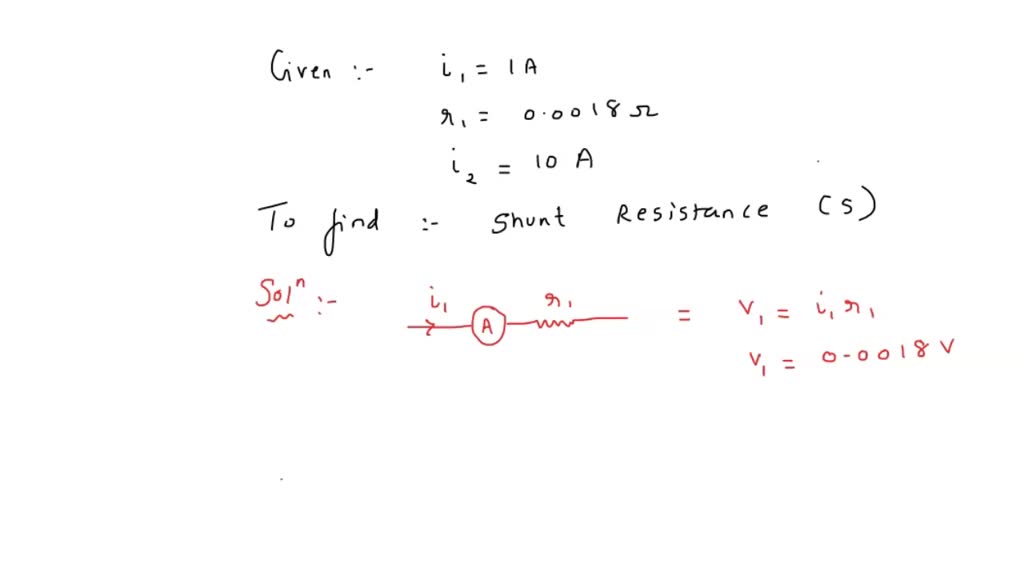 Given :- i₁ = 1A
r₁ = 0.0018 Ω
i₂ = 10 A
To find :- Shunt Resistance (S)
Solⁿ :- i₁ A r₁ = V₁ = i₁ r₁
V₁ = 0.0018 V